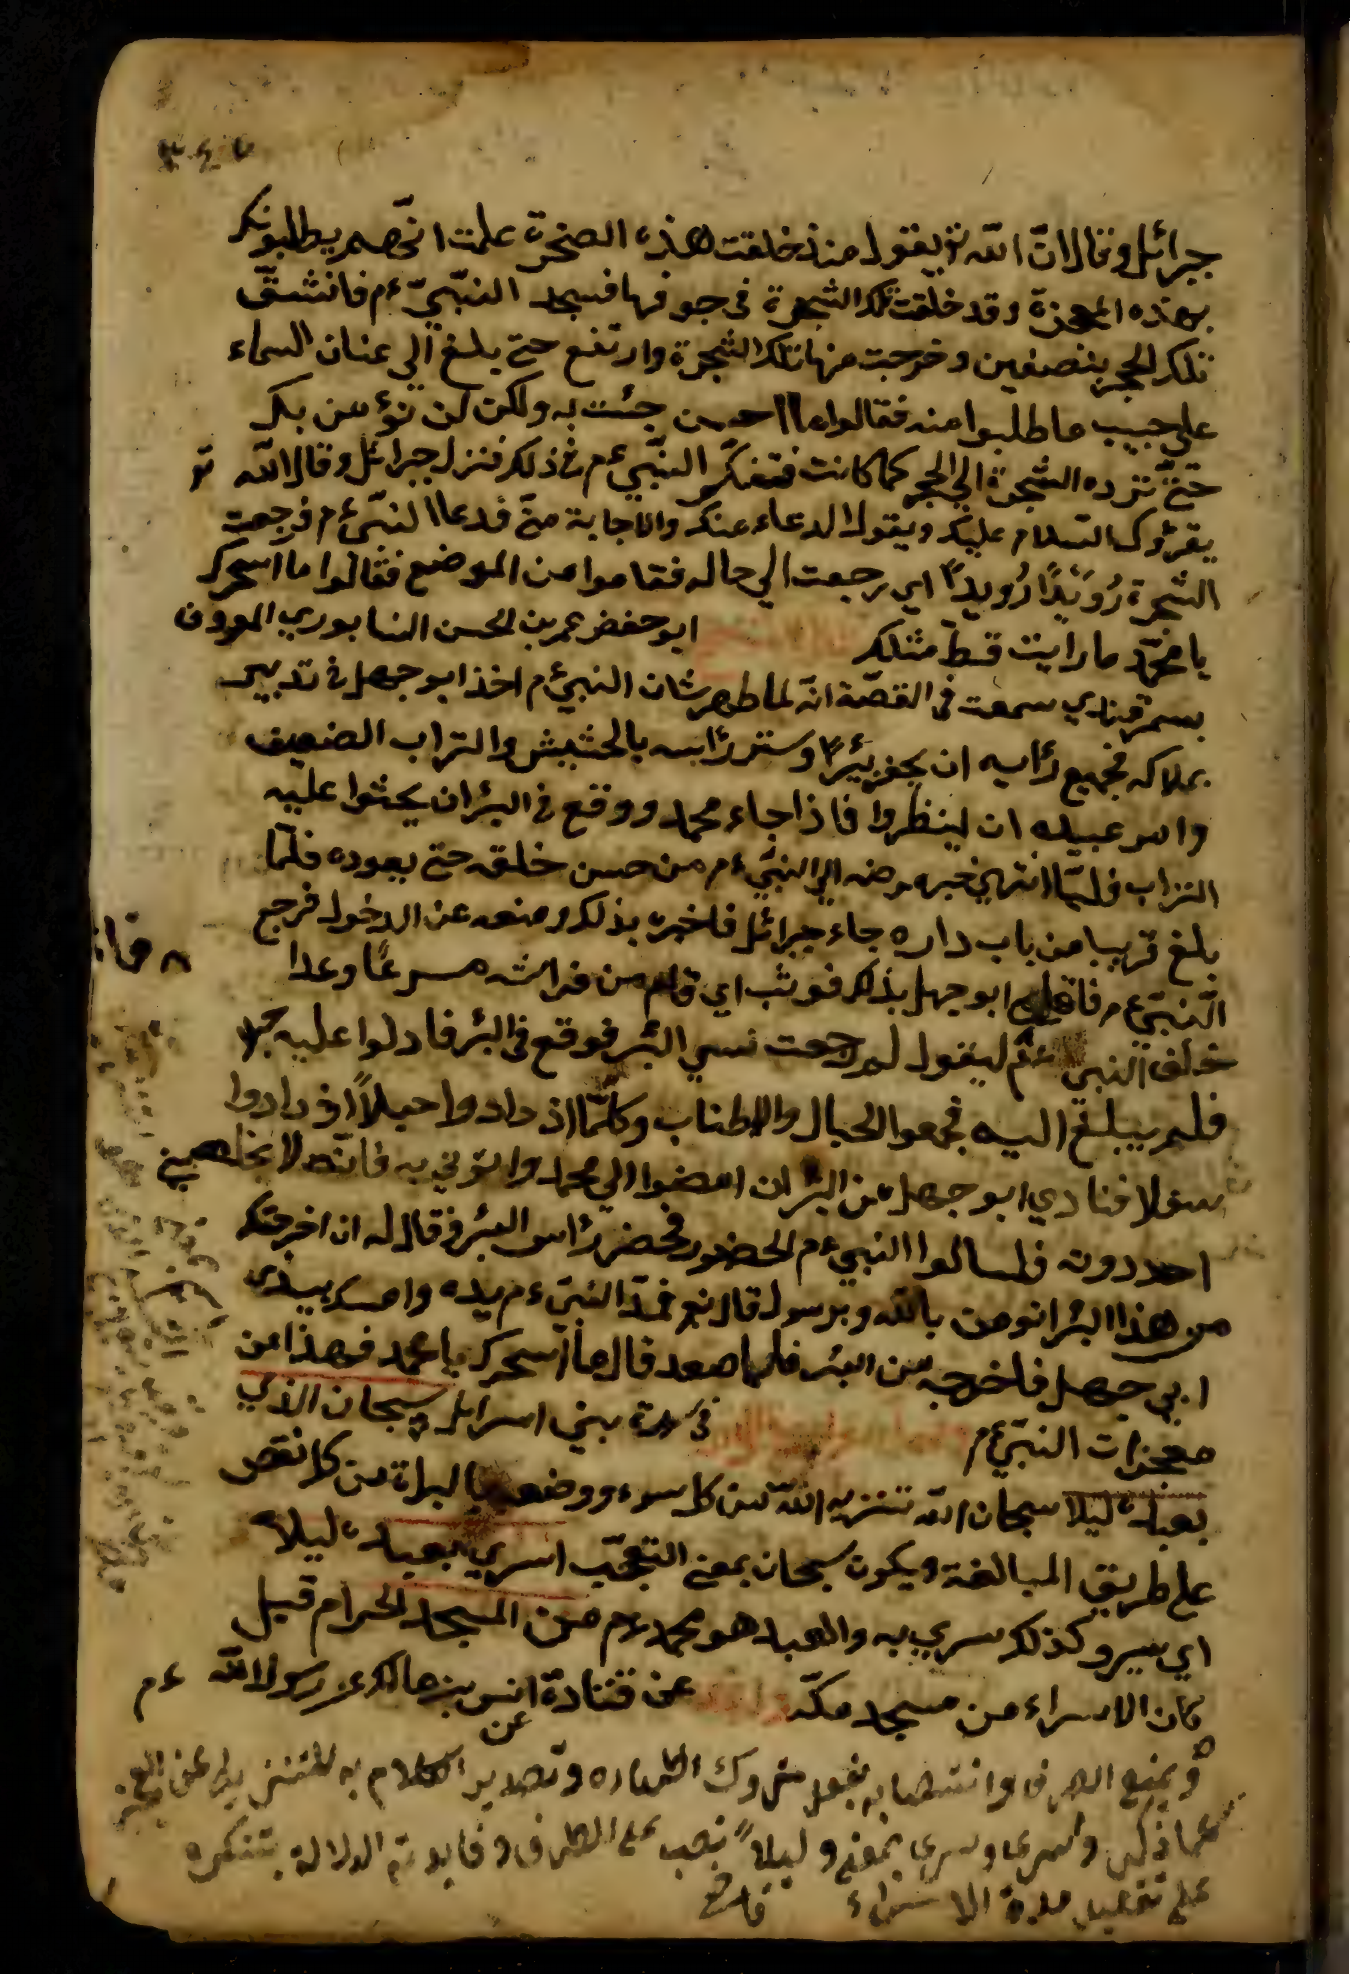 جبرائل وقال ان الله تع يقول منذ خلقت هذه الصخرة علمت انهم يطلبونك
بهذه المعجزة وقد خلقت تلك الشجرة في جوفها فسجد النبي ءم فانشق
تلك الحجر بنصفين وخرجت منها تلك الشجرة وارتفع حتى بلغ الي عنان السماء
علي حبيب ما طلبوا منه فقالوا ما احسن جئت به ولكن لن نؤمن بك
حتى ترده الشجرة الي الحجر كما كانت فتفكر النبي ءم في ذلك فنزل جبرائل وقال الله تع
يقرؤك السلام عليك ويقول الدعاء عنك والاجابة مني فدعا النبي ءم فرجعت
الشجرة رويدا رويدا اي رجعت الي حاله فقاموا من الموضع فقالوا ما اسحرك
يا محمد ما رايت قط مثلك ابو حفض عمر بن الحسن النسابوري المعروف
بسمرقندي سمعت في القصة انه لما ظهر شان النبي ءم اخذ ابو جهل في تدبير
بهلاكه فجميع رأيه ان يحفر بئرا وستر رأسه بالحشيش والتراب الضعيف
وامر عبيده ان لينظروا فاذا جاء محمد ووقع في البئر ان يحثوا عليه
التراب فلما انتهي خبر مرضه الي النبي ءم من حسن خلقه حتى يعوده فلما
بلغ قريبا من باب داره جاء جبرائل فاخبره بذلك ومنعه عن الدخول فرجع
النبي ءم ابو جهل بذلك فوثب اي قام من فراشه مسرعا وعدا
خلف النبي ءم ليقول لم رجعت نسي البئر فوقع في البئر فادلوا عليه حبلا
فلم يبلغ اليه فجمعوا الحبال والاطناب وكلما اذدادوا حبلا اذدادوا
سفلا فنادي ابو جهل من البئر ان امضوا الي محمد وائتوني به فانه لا يخلصني
احد دونه فلسالوا النبي ءم الحضور فحضر رأس البئر فقال له ان اخرجتك
من هذا البئر اتومن بالله وبرسوله قال نعم فمد النبي ءم يده وامسك بيدي
ابي جهل فاخرجه من البئر فلما صعد قال ما اسحرك يا محمد فهذا من
معجزات النبي ءم في سورة بني اسرائل سبحان الذي
بعبده ليلا سبحان الله تنزيه الله من كل سوء ووضعه بالبراة من كل نقص
علي طريق المبالغة ويكون سبحان بمعنى التعجب اسري بعبده ليلا
اي سير وكذلك سري به والعبد هو محمد ءم من المسجد الحرام قيل
كان الاسراء من مسجد مكة عن قتادة عن انس بن مالك عن رسول الله ءم
ويمنع الصرف وانتصابه بفعل متروك اظهاره وتصدير الكلام به للتنزيه عن العجز
عما ذكر واسرى وسرى بمعنى وليلا نصب على الظرف وفايدته الدلالة بتنكيره
على تقليل مدة الاسراء